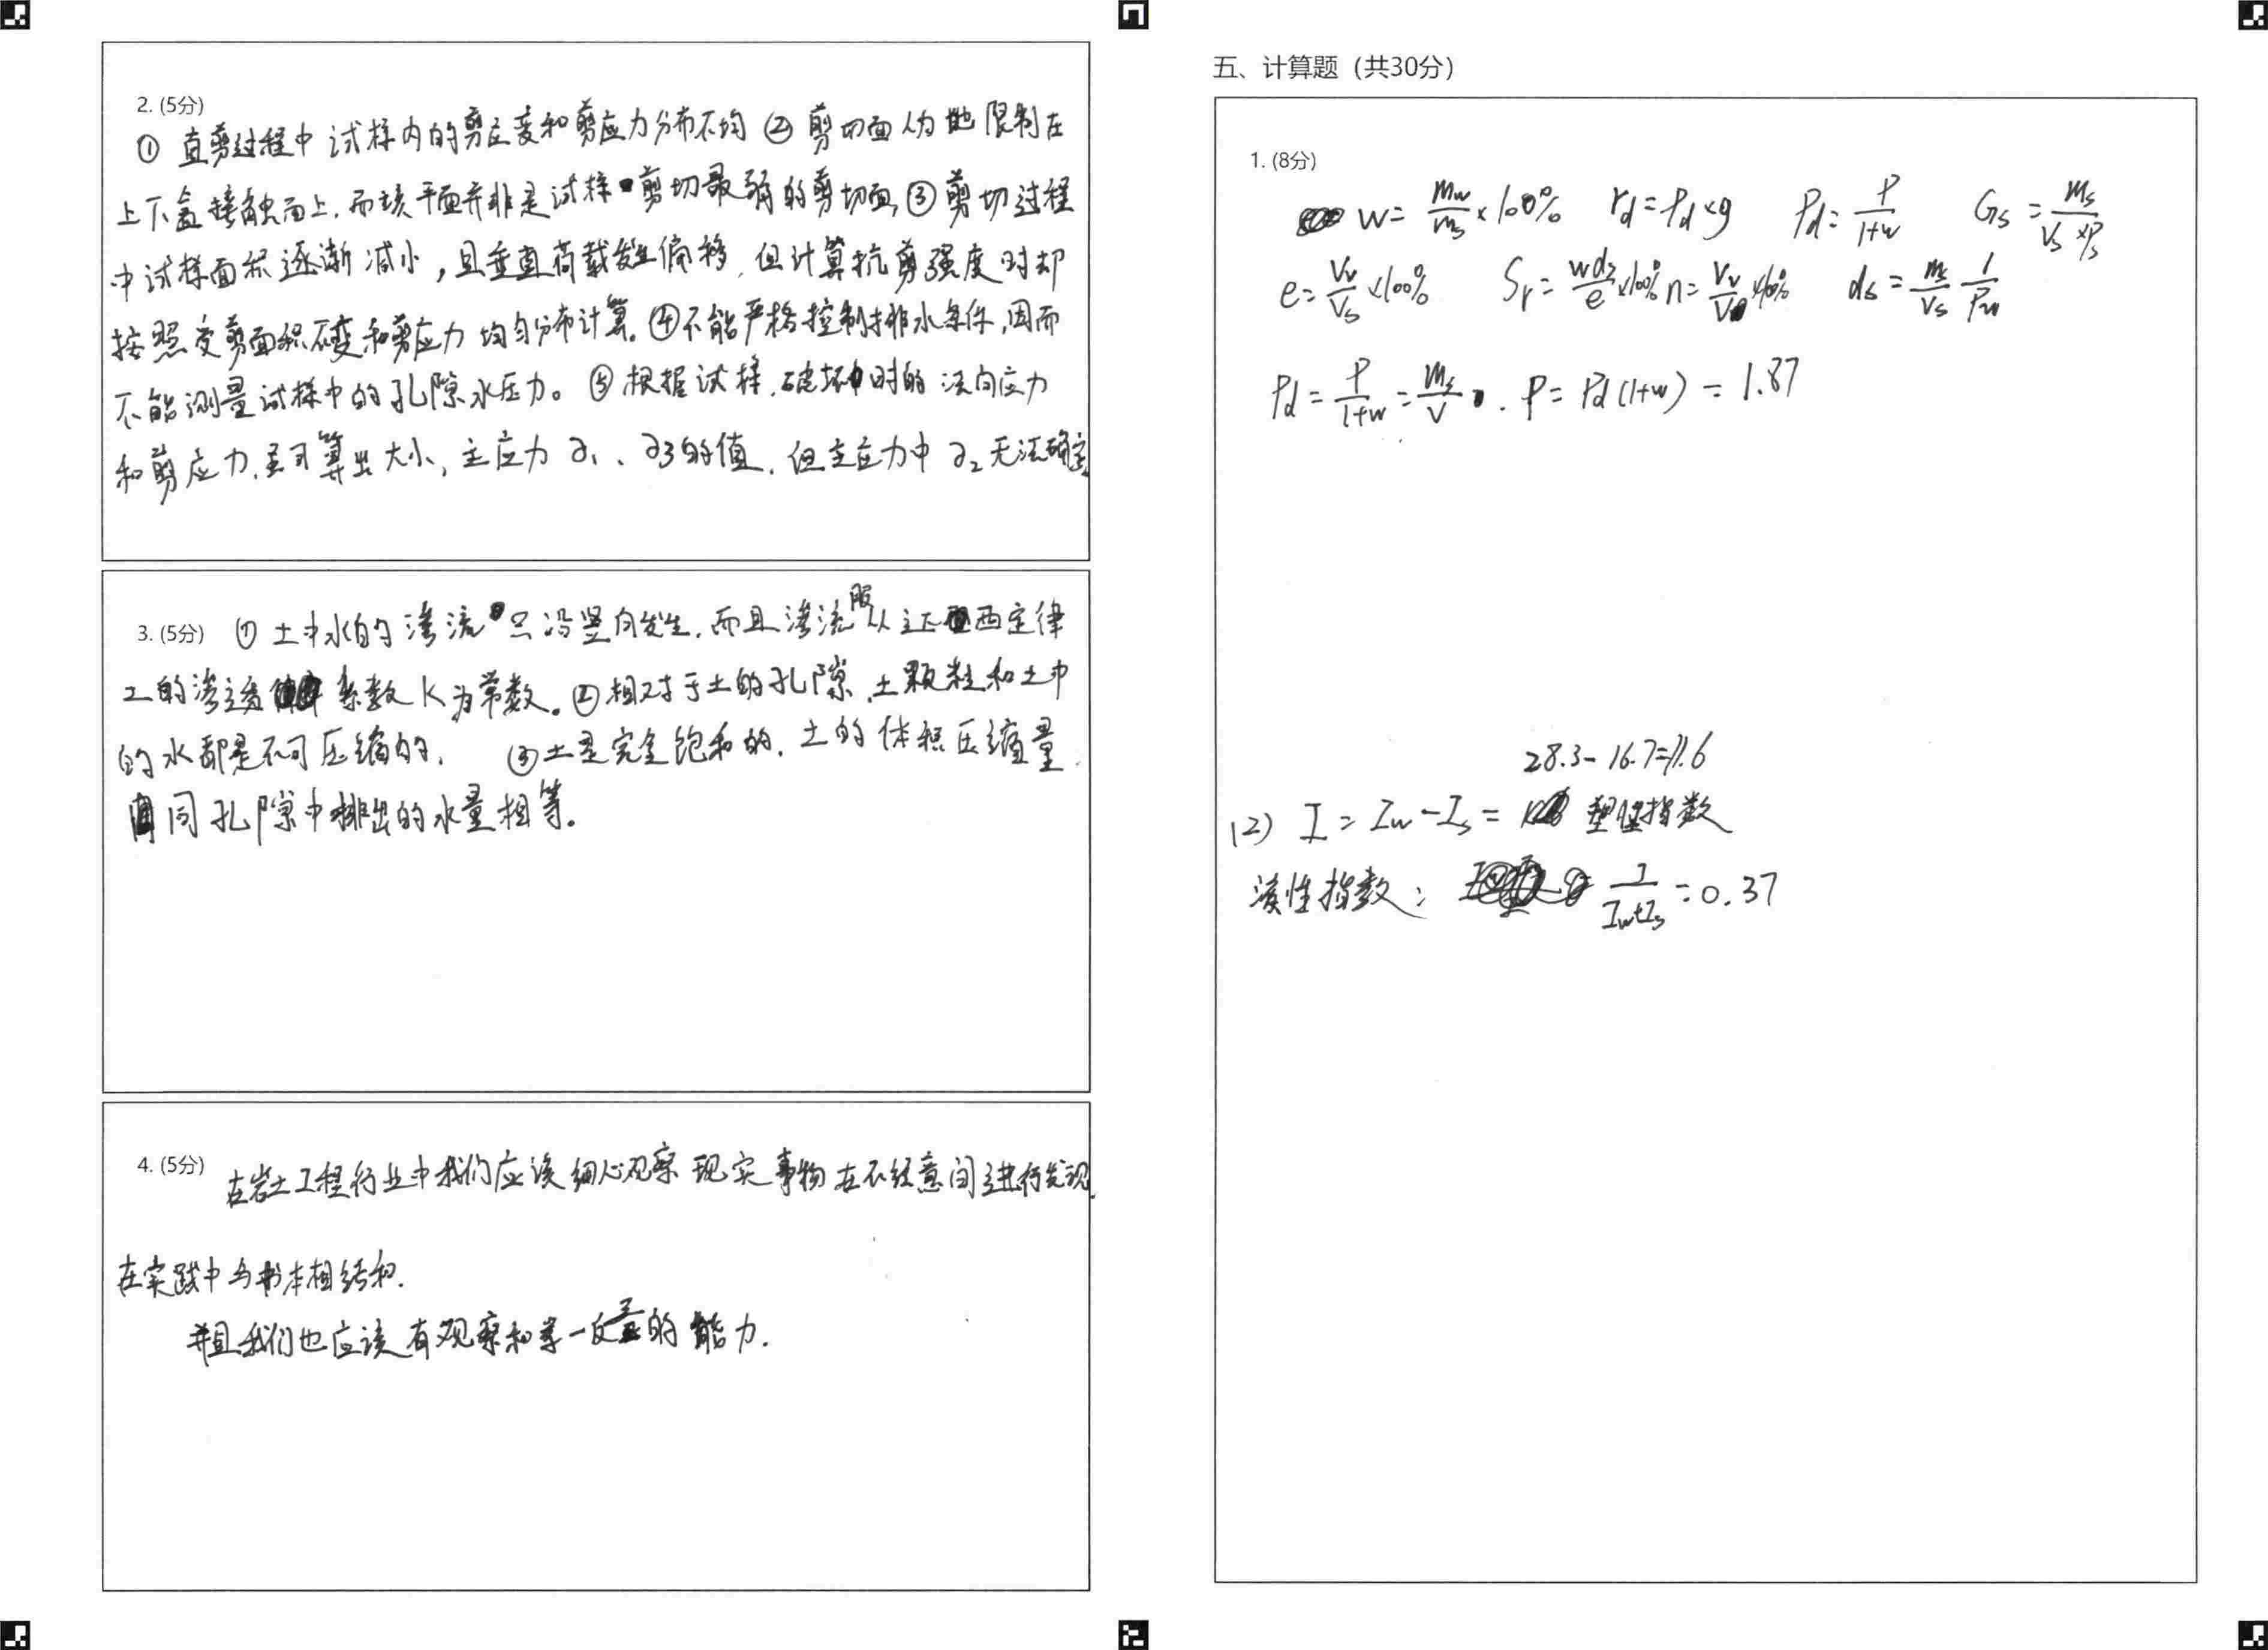 2. (5分)
① 直剪过程中试样内的剪应变和剪应力分布不均 ② 剪切面人为地限制在
上下盒接触面上，而该平面并非是试样剪切最弱的剪切面，③ 剪切过程
中试样面积逐渐减小，且垂直荷载发生偏移，但计算抗剪强度时却
按照受剪面积不变和剪应力均匀分布计算。④不能严格控制排水条件，因而
不能测量试样中的孔隙水压力。⑤ 根据试样，破坏时的法向应力
和剪应力，虽可算出大小，主应力 σ₁、σ3的值，但主应力中 σ₂ 无法确定
3. (5分) ① 土中水的渗流只沿竖向发生，而且渗流服从达西定律
土的渗透系数 K 为常数。②相对于土的孔隙，土颗粒和土中
的水都是不可压缩的， ③土是完全饱和的，土的体积压缩量
同孔隙中排出的水量相等。
4. (5分) 在岩土工程行业中我们应该细心观察现实事物在不经意间进行发现.
在实践中与书本相结和.
并且我们也应该有观察和举一反三的能力.
五、计算题（共30分）
1. (8分)
w = mw/ms × 100% rd = ρd × g ρd = ρ/(1+w) Gs = ms/(Vs × ρs)
e = Vv/Vs × 100% Sr = wds/e × 100% n = Vv/V × 100% ds = ms/Vs 1/ρw
ρd = ρ/(1+w) = ms/V . ρ = ρd(1+w) = 1.87
28.3 - 16.7 = 11.6
(2) I = Iw - Is = 塑性指数
液性指数: I/(Iw+Is) = 0.37